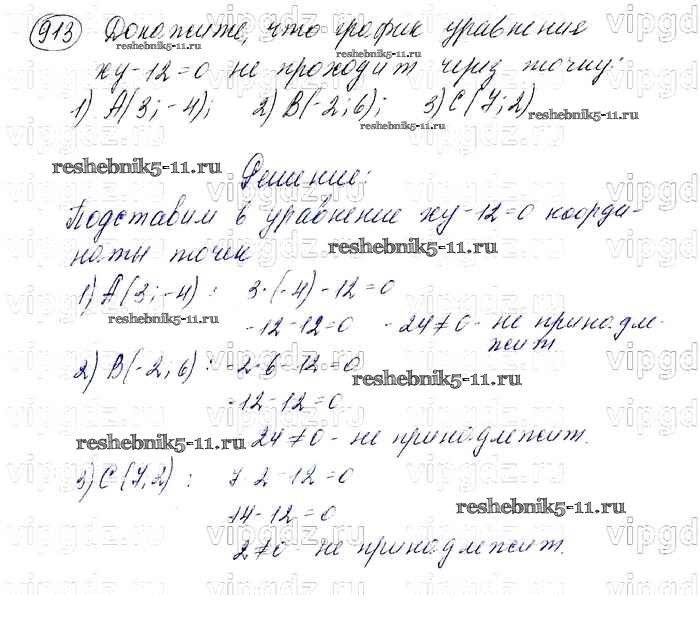 913 Докажите, что график уравнения
xy-12=0 не проходит через точку:
1) A(3;-4); 2) B(-2;6); 3) C(7;2)
Решение:
Подставим в уравнение xy-12=0 коорди-
наты точек
1) A(3;-4): 3·(-4)-12=0
-12-12=0 -24≠0- не принадле-
жит
2) B(-2;6): -2·6-12=0
-12-12=0
-24≠0- не принадлежит.
3) C(7;2): 7·2-12=0
14-12=0
2≠0- не принадлежит.
reshebnik5-11.ru
reshebnik5-11.ru
reshebnik5-11.ru
reshebnik5-11.ru
reshebnik5-11.ru
reshebnik5-11.ru
reshebnik5-11.ru
reshebnik5-11.ru
reshebnik5-11.ru
vipgdz.ru